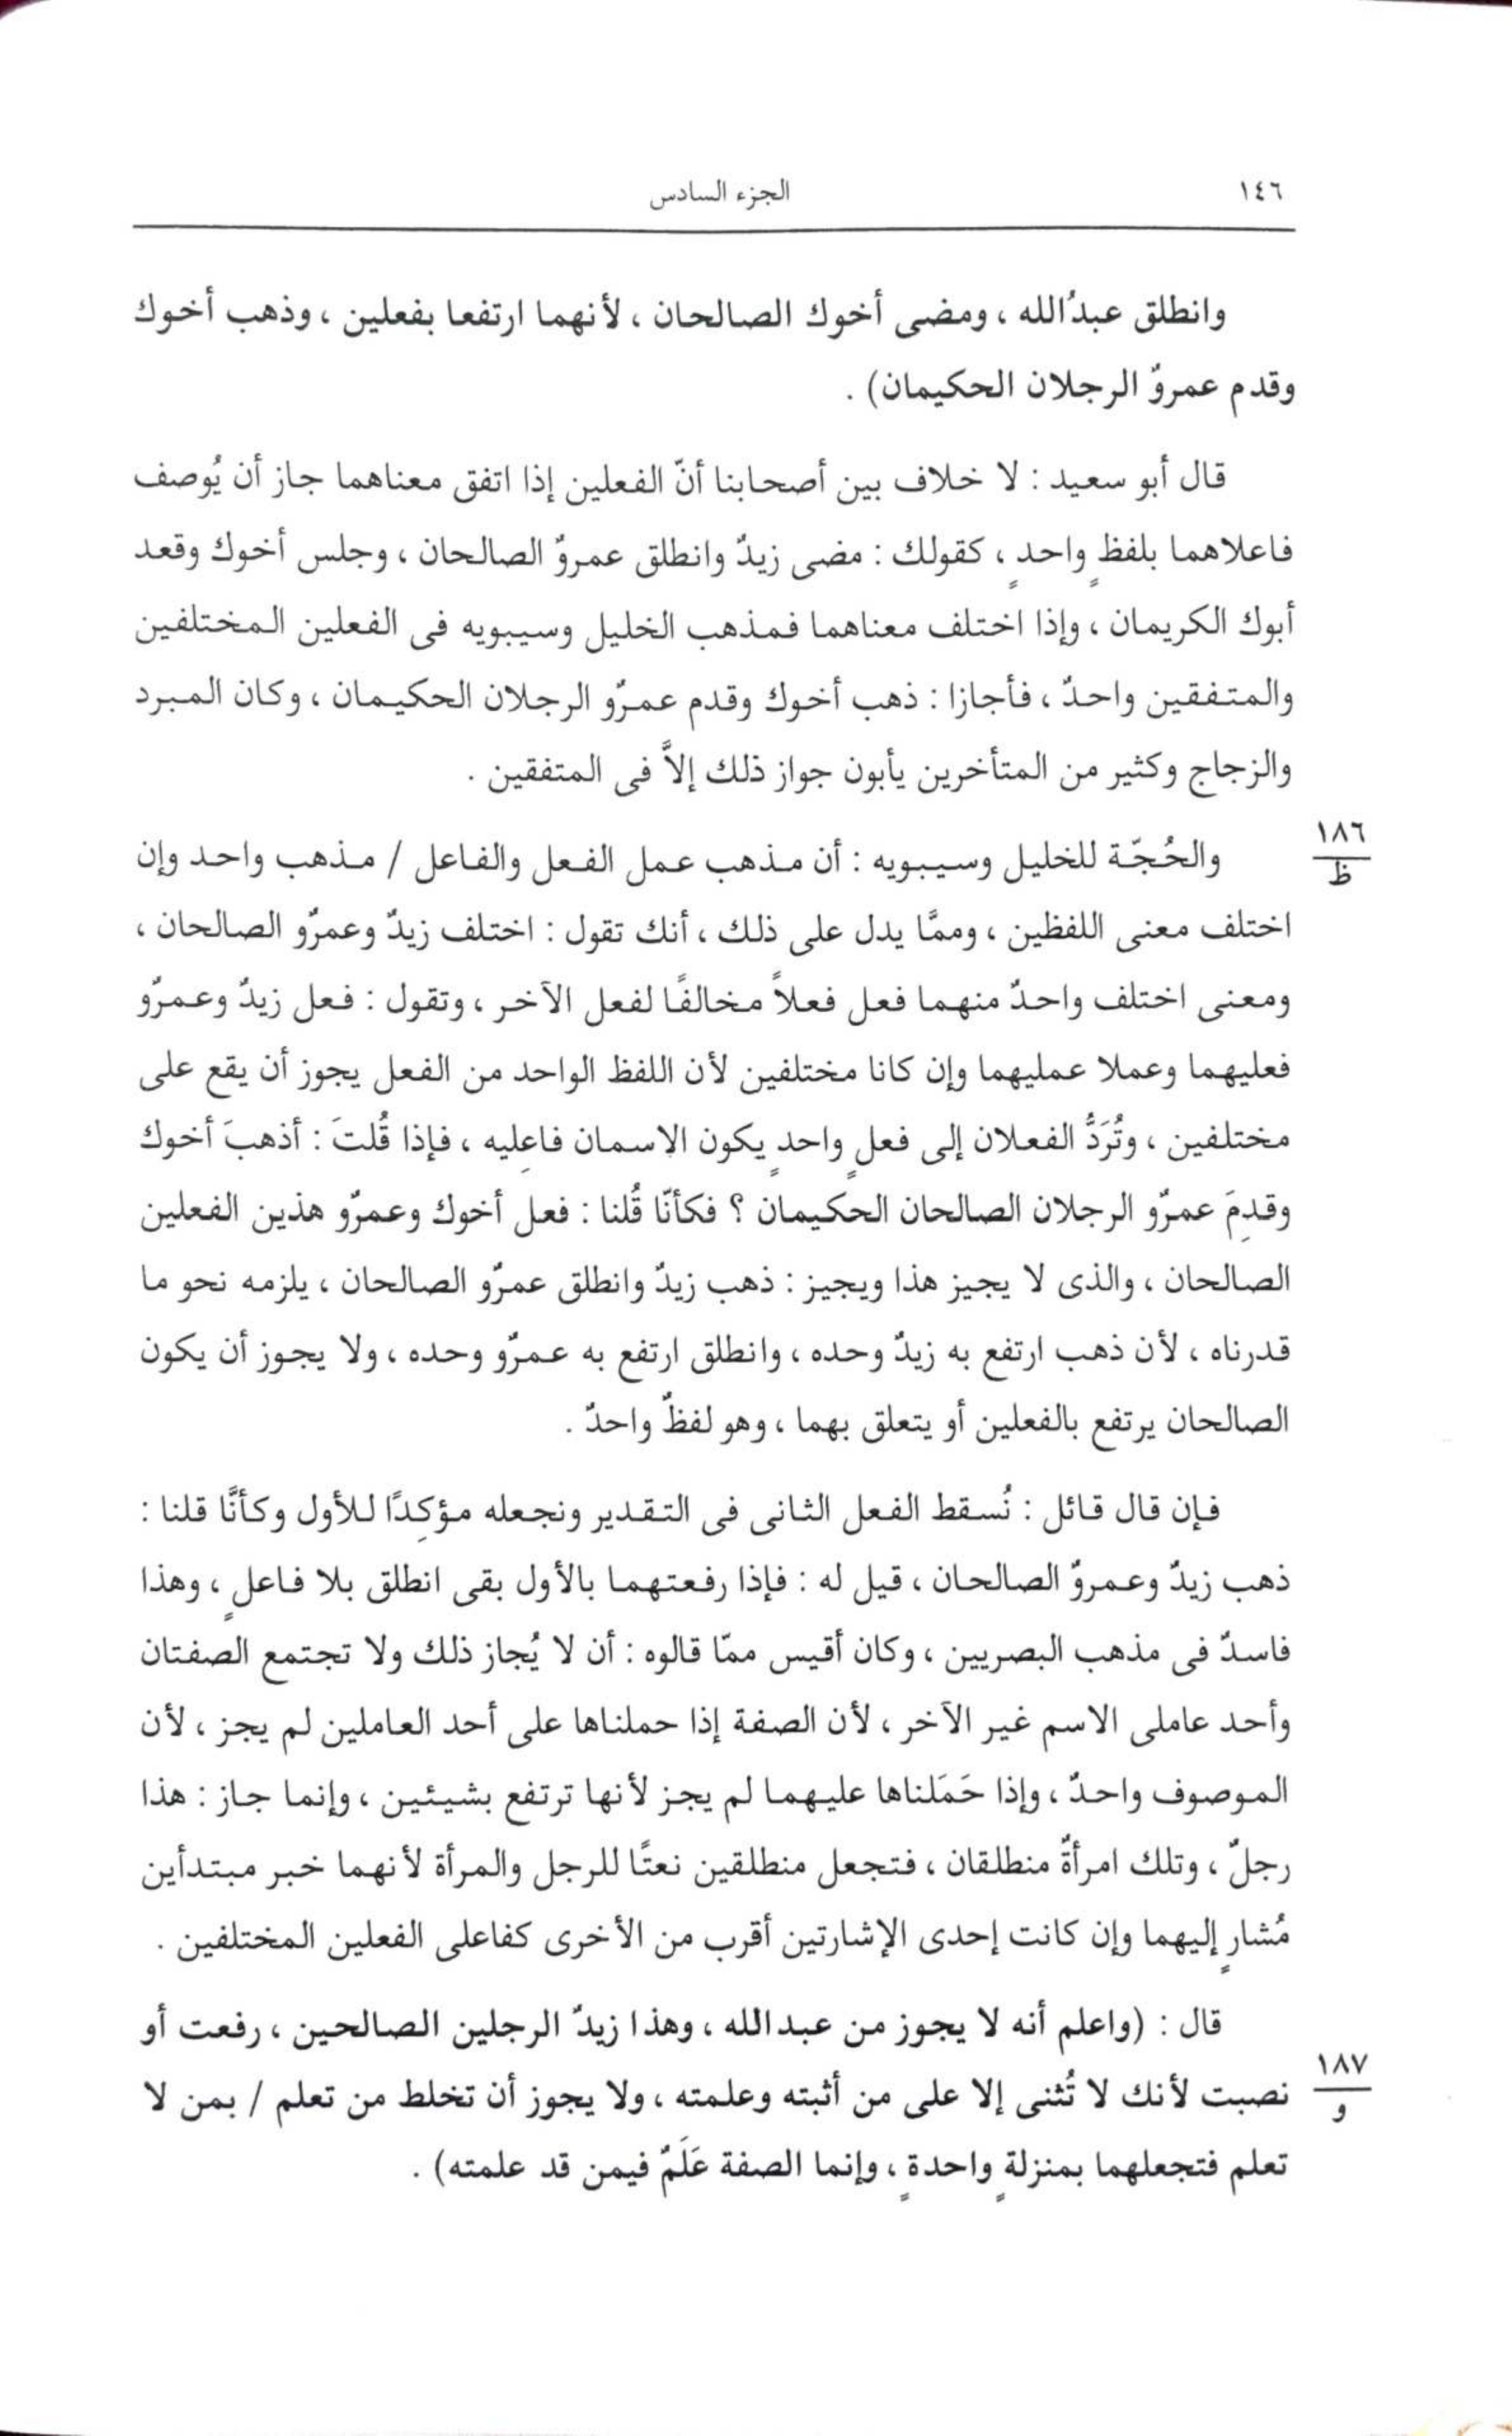 ١٤٦
الجزء السادس
وانطلق عبدُالله ، ومضى أخوك الصالحان ، لأنهما ارتفعا بفعلين ، وذهب أخوك
وقدم عمروٌ الرجلان الحكيمان) .
قال أبو سعيد : لا خلاف بين أصحابنا أنّ الفعلين إذا اتفق معناهما جاز أن يُوصف
فاعلاهما بلفظٍ واحدٍ ، كقولك : مضى زيدٌ وانطلق عمروٌ الصالحان ، وجلس أخوك وقعد
أبوك الكريمان ، وإذا اختلف معناهما فمذهب الخليل وسيبويه فى الفعلين المختلفين
والمتفقين واحدٌ ، فأجازا : ذهب أخوك وقدم عمرٌو الرجلان الحكيمان ، وكان المبرد
والزجاج وكثير من المتأخرين يأبون جواز ذلك إلاَّ فى المتفقين .
والحُجّة للخليل وسيبويه : أن مذهب عمل الفعل والفاعل / مذهب واحد وإن
١٨٦
ظ
اختلف معنى اللفظين ، وممَّا يدل على ذلك ، أنك تقول : اختلف زيدٌ وعمرٌو الصالحان ،
ومعنى اختلف واحدٌ منهما فعل فعلاً مخالفًا لفعل الآخر ، وتقول : فعل زيدٌ وعمرٌو
فعليهما وعملا عمليهما وإن كانا مختلفين لأن اللفظ الواحد من الفعل يجوز أن يقع على
مختلفين ، وتُرَدُّ الفعلان إلى فعلٍ واحدٍ يكون الاسمان فاعِليه ، فإذا قُلتَ : أذهبَ أخوك
وقدِمَ عمرٌو الرجلان الصالحان الحكيمان ؟ فكأنّا قُلنا : فعل أخوك وعمرٌو هذين الفعلين
الصالحان ، والذى لا يجيز هذا ويجيز : ذهب زيدٌ وانطلق عمرٌو الصالحان ، يلزمه نحو ما
قدرناه ، لأن ذهب ارتفع به زيدٌ وحده ، وانطلق ارتفع به عمرٌو وحده ، ولا يجوز أن يكون
الصالحان يرتفع بالفعلين أو يتعلق بهما ، وهو لفظٌ واحدٌ .
فإن قال قائل : نُسقط الفعل الثانى فى التقدير ونجعله مؤكِدًا للأول وكأنَّا قلنا :
ذهب زيدٌ وعمروٌ الصالحان ، قيل له : فإذا رفعتهما بالأول بقى انطلق بلا فاعلٍ ، وهذا
فاسدٌ فى مذهب البصريين ، وكان أقيس ممّا قالوه : أن لا يُجاز ذلك ولا تجتمع الصفتان
وأحد عاملى الاسم غير الآخر ، لأن الصفة إذا حملناها على أحد العاملين لم يجز ، لأن
الموصوف واحدٌ ، وإذا حَمَلناها عليهما لم يجز لأنها ترتفع بشيئين ، وإنما جاز : هذا
رجلٌ ، وتلك امرأةٌ منطلقان ، فتجعل منطلقين نعتًا للرجل والمرأة لأنهما خبر مبتدأين
مُشارٍ إليهما وإن كانت إحدى الإشارتين أقرب من الأخرى كفاعلى الفعلين المختلفين .
قال : (واعلم أنه لا يجوز من عبدالله ، وهذا زيدٌ الرجلين الصالحين ، رفعت أو
نصبت لأنك لا تُثنى إلا على من أثبته وعلمته ، ولا يجوز أن تخلط من تعلم / بمن لا
١٨٧
و
تعلم فتجعلهما بمنزلةٍ واحدةٍ ، وإنما الصفة عَلَمٌ فيمن قد علمته) .